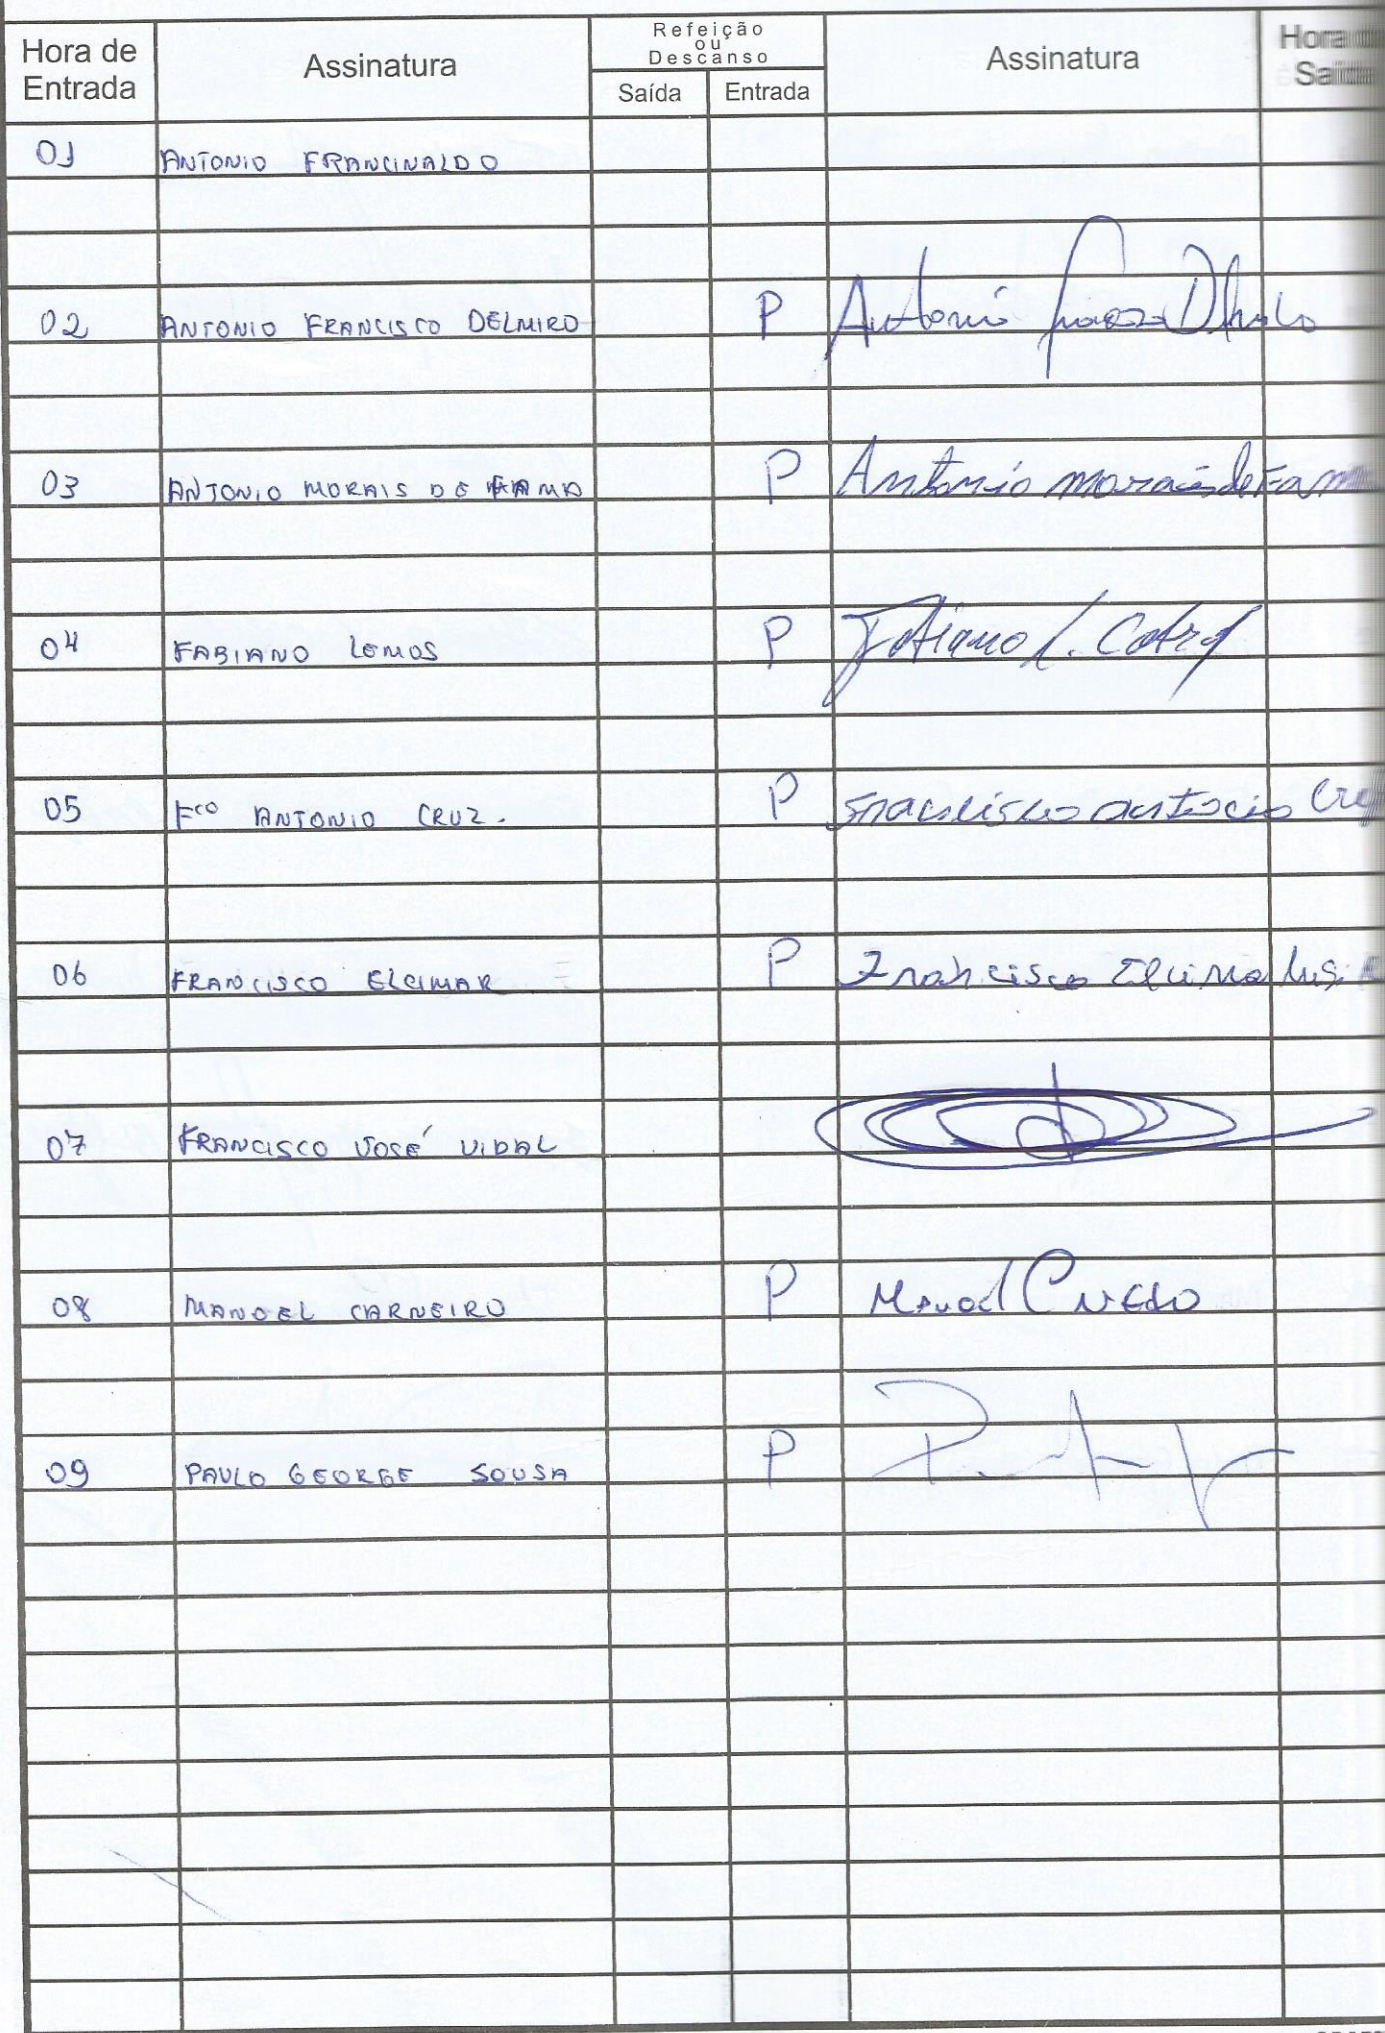 Hora de Entrada Assinatura Refeição ou Descanso Saída Entrada Assinatura Hora Saída
01 ANTONIO FRANCINALDO
02 ANTONIO FRANCISCO DELMIRO P Antonio
03 ANTONIO MORAIS DE FAMA P Antonio morais de Fam
04 FABIANO LEMOS P Fabiano L.
05 Fco ANTONIO CRUZ. P Francisco antonio
06 FRANCISCO ELCIMAR P Francisco
07 FRANCISCO JOSÉ VIDAL
08 MANOEL CARNEIRO P Manoel
09 PAULO GEORGE SOUSA P